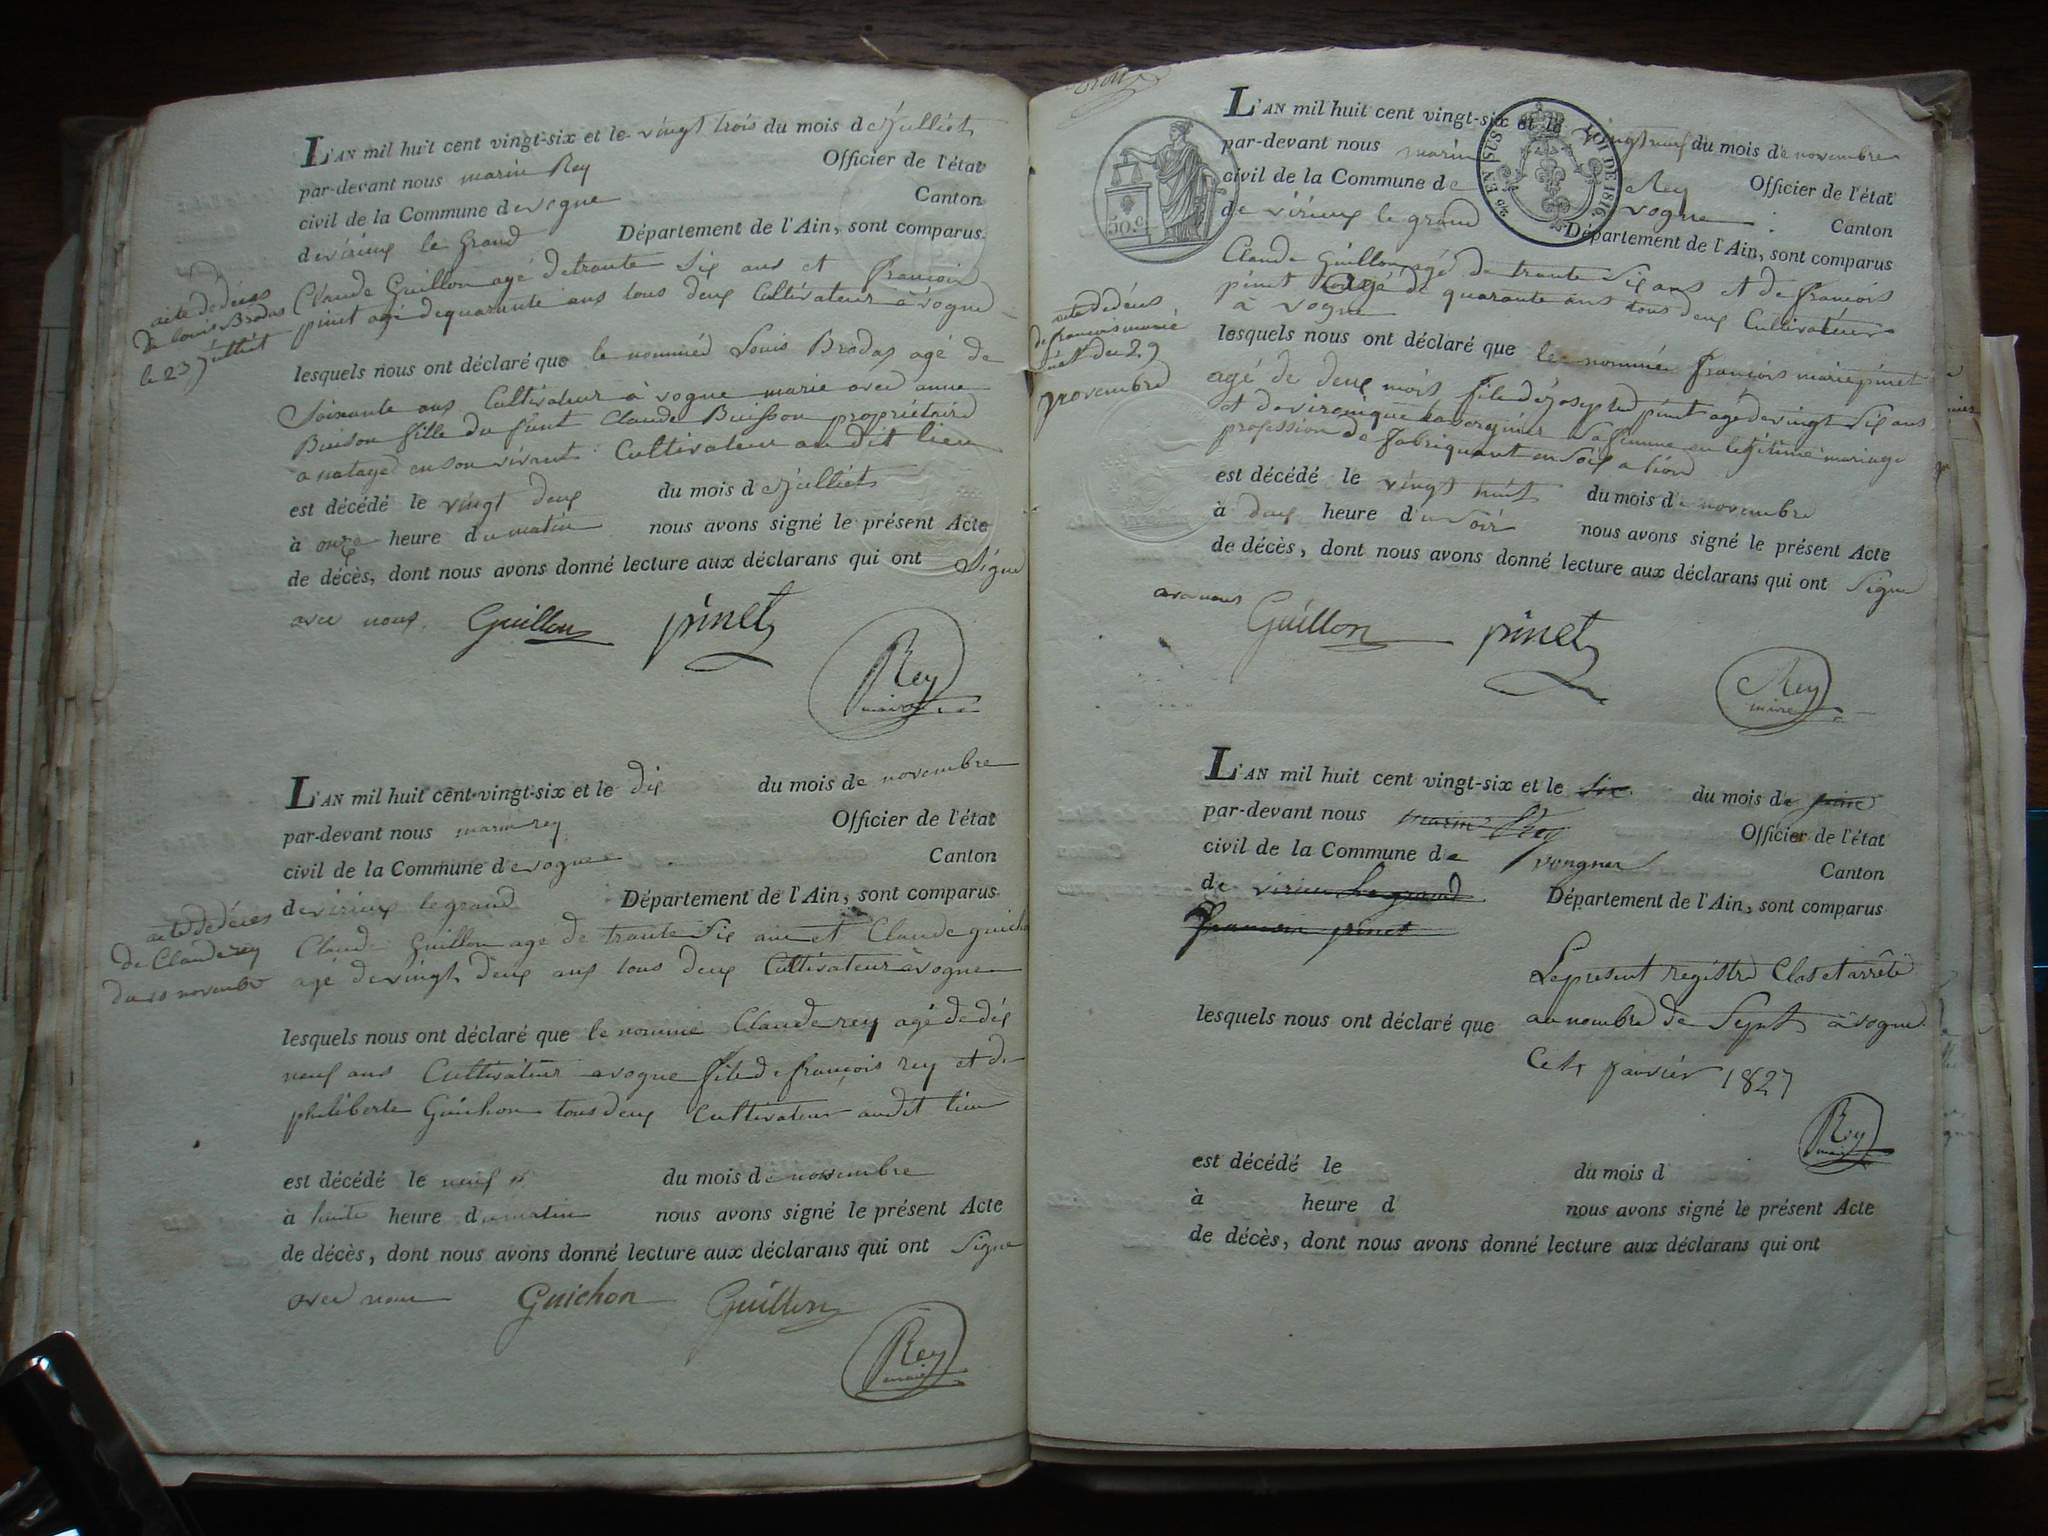 L'AN mil huit cent vingt-six et le vingt trois du mois de juilliet
par-devant nous marin Rey Officier de l'état
civil de la Commune de vogne Canton
de virieux le Grand Département de l'Ain, sont comparus
acte de décès
de louis Brodas
le 23 juilliet
Claude Guillon agé de trante six ans et françois
pinet agé de quarante ans tous deux Cultivateur a vogne
lesquels nous ont déclaré que le nommed Louis Brodas agé de
Soixante ans Cultivateur a vogne marie aved anne
Buison fille du feint Claude Buisson propriétaire
a natayed en son vivant Cultivateur au dit lieu
est décédé le vingt deux du mois de juilliet
à onze heure du matin nous avons signé le présent Acte
de décès, dont nous avons donné lecture aux déclarans qui ont Signé
avec nous. Guillon pinet
Rey
maire
L'AN mil huit cent vingt-six et le dix du mois de novembre
par-devant nous marin rey Officier de l'état
civil de la Commune de vogne Canton
de virieux le grand Département de l'Ain, sont comparus
acte de décès
de Claude rey
du 10 novembre
Claude Guillon age de trante six ans et Claude guichon
agé de vingt deux ans tous deux Cultivateur a vogne
lesquels nous ont déclaré que le nommé Claude rey agé de dix
neuf ans Cultivateur a vogne fils de françois rey et de
philiberte Guichon tous deux Cultivateur au dit lieu
est décédé le neuf du mois de novembre
à huite heure du matin nous avons signé le présent Acte
de décès, dont nous avons donné lecture aux déclarans qui ont Signe
aved nous Guichon Guillon
Rey
maire
L'AN mil huit cent vingt-six et le vingt neuf du mois de novembre
par-devant nous marin Rey Officier de l'état
civil de la Commune de vogne Canton
de virieux le grand Département de l'Ain, sont comparus
50 c.
EN SUS
LOI DE 1816
acte de décès
de françois marie
pinet du 29
novembre
Claude Guillon agé de trante six ans et de françois
pinet agé de quarante ans tous deux Cultivateur
à vogne
lesquels nous ont déclaré que le nommé françois marie pinet
agé de deux mois fils de josephd pinet agé de vingt six ans
et de vironique sa femme en legitime mariage
profession de fabriquant en Soie a lion
est décédé le vingt huit du mois de novembre
à deux heure du Soir nous avons signé le présent Acte
de décès, dont nous avons donné lecture aux déclarans qui ont Signe
avec nous Guillon pinet
Rey
maire
L'AN mil huit cent vingt-six et le six du mois de juin
par-devant nous marin Rey Officier de l'état
civil de la Commune de vongnes Canton
de virieu le grand Département de l'Ain, sont comparus
francois pinet
Le present registre Clos et arrêté
lesquels nous ont déclaré que au nombre de Sept à vogne
Ce 1r janvier 1827
Rey
maire
est décédé le du mois d
à heure d nous avons signé le présent Acte
de décès, dont nous avons donné lecture aux déclarans qui ont